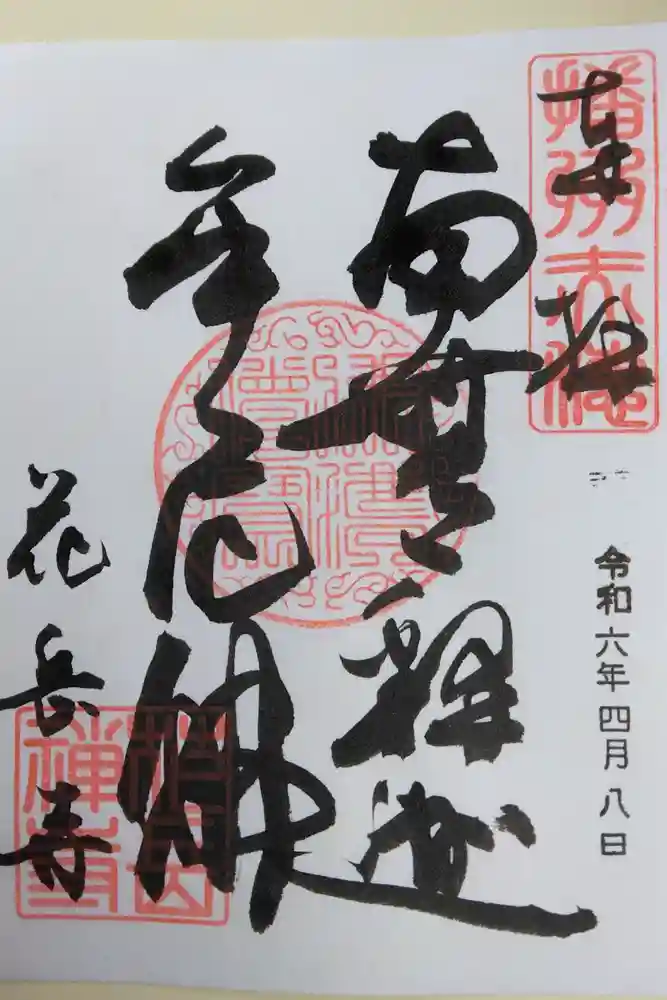 奉拝
播州赤穂
令和六年四月八日
南無釋迦
牟尼佛
花岳寺